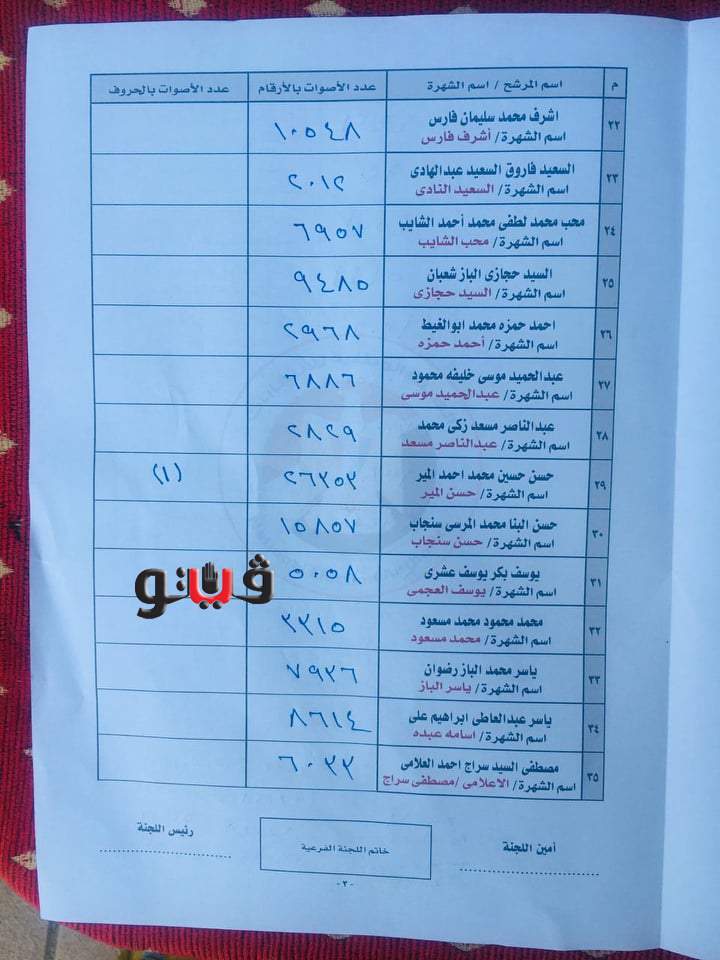 م	اسم المرشح / اسم الشهرة	عدد الأصوات بالأرقام	عدد الأصوات بالحروف
٢٢	اشرف محمد سليمان فارس	١٠٥٤٨
اسم الشهرة/ أشرف فارس
٢٣	السعيد فاروق السعيد عبدالهادى	٢٠١٢
اسم الشهرة/ السعيد النادى
٢٤	محب محمد لطفى محمد أحمد الشايب	٦٩٥٧
اسم الشهرة/ محب الشايب
٢٥	السيد حجازى الباز شعبان	٩٤٨٥
اسم الشهرة/ السيد حجازى
٢٦	احمد حمزه محمد ابوالغيط	٢٩٦٨
اسم الشهرة/ أحمد حمزه
٢٧	عبدالحميد موسى خليفه محمود	٦٨٨٦
اسم الشهرة/ عبدالحميد موسى
٢٨	عبدالناصر مسعد زكى محمد	٢٨٢٩
اسم الشهرة/ عبدالناصر مسعد
٢٩	حسن حسين محمد احمد المير	٢٦٣٥٣	(١)
اسم الشهرة/ حسن المير
٣٠	حسن البنا محمد المرسى سنجاب	١٥٨٥٧
اسم الشهرة/ حسن سنجاب
٣١	يوسف بكر يوسف عشرى	٥٠٥٨
اسم الشهرة/ يوسف العجمى
ڤيتو
٣٢	محمد محمود محمد مسعود	٣٣١٥
اسم الشهرة/ محمد مسعود
٣٣	ياسر محمد الباز رضوان	٧٩٣٦
اسم الشهرة/ ياسر الباز
٣٤	ياسر عبدالعاطى ابراهيم على	٨٦١٤
اسم الشهرة/ اسامه عبده
٣٥	مصطفى السيد سراج احمد العلامى	٦٠٣٣
اسم الشهرة/ الاعلامى /مصطفى سراج
أمين اللجنة	خاتم اللجنة الفرعية	رئيس اللجنة
-٢-